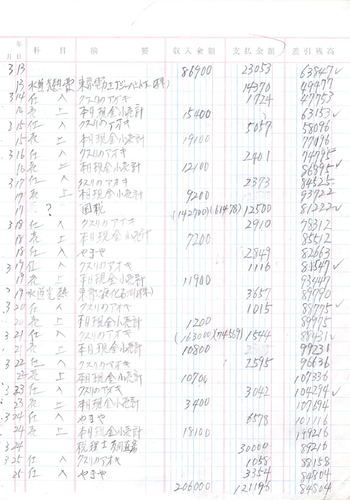 年 月 日 科 目 摘 要 収入金額 支払金額 差引残高
3 13 86900 23053 63847
13 水道光熱費 東京電力エナジーパートナー(株) 14370 49477
3 14 仕入 クスリのアオキ 1724 47753
14 売上 本日現金小売計 15400 63153
3 15 仕入 クスリのアオキ 5057 58096
15 売上 本日現金小売計 19100 77196
3 16 仕入 クスリのアオキ 2401 74795
16 売上 本日現金小売計 12100 86895
3 17 仕入 クスリのアオキ 2373 84522
17 売上 本日現金小売計 9200 93722
17 ? 国税 (142700) (61478) 12500 81222
3 18 仕入 クスリのアオキ 2910 78312
18 売上 本日現金小売計 7200 85512
18 仕入 やまや 2849 82663
3 19 仕入 クスリのアオキ 1116 81547
19 売上 本日現金小売計 11900 93447
19 水道光熱 3657 89790
3 20 仕入 クスリのアオキ 1015 88775
20 売上 本日現金小売計 1200 89975
3 21 仕入 クスリのアオキ (163000) (74569) 1544 88431
21 売上 本日現金小売計 10800 99231
3 22 仕入 クスリのアオキ 2595 96636
22 売上 本日現金小売計 10700 107336
3 23 仕入 クスリのアオキ 3042 104294
23 売上 本日現金小売計 3400 107694
3 24 仕入 やまや 6578 101116
24 売上 本日現金小売計 18100 119216
税理士 30000 89216
3 25 仕入 クスリのアオキ 1058 88158
25 仕入 やまや 3354 84804
206000 121196 84804